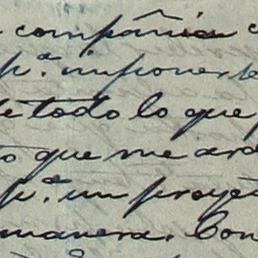 compañia
pª. imponerse
de todo lo que
que me
pª. un proyec
manera. Con